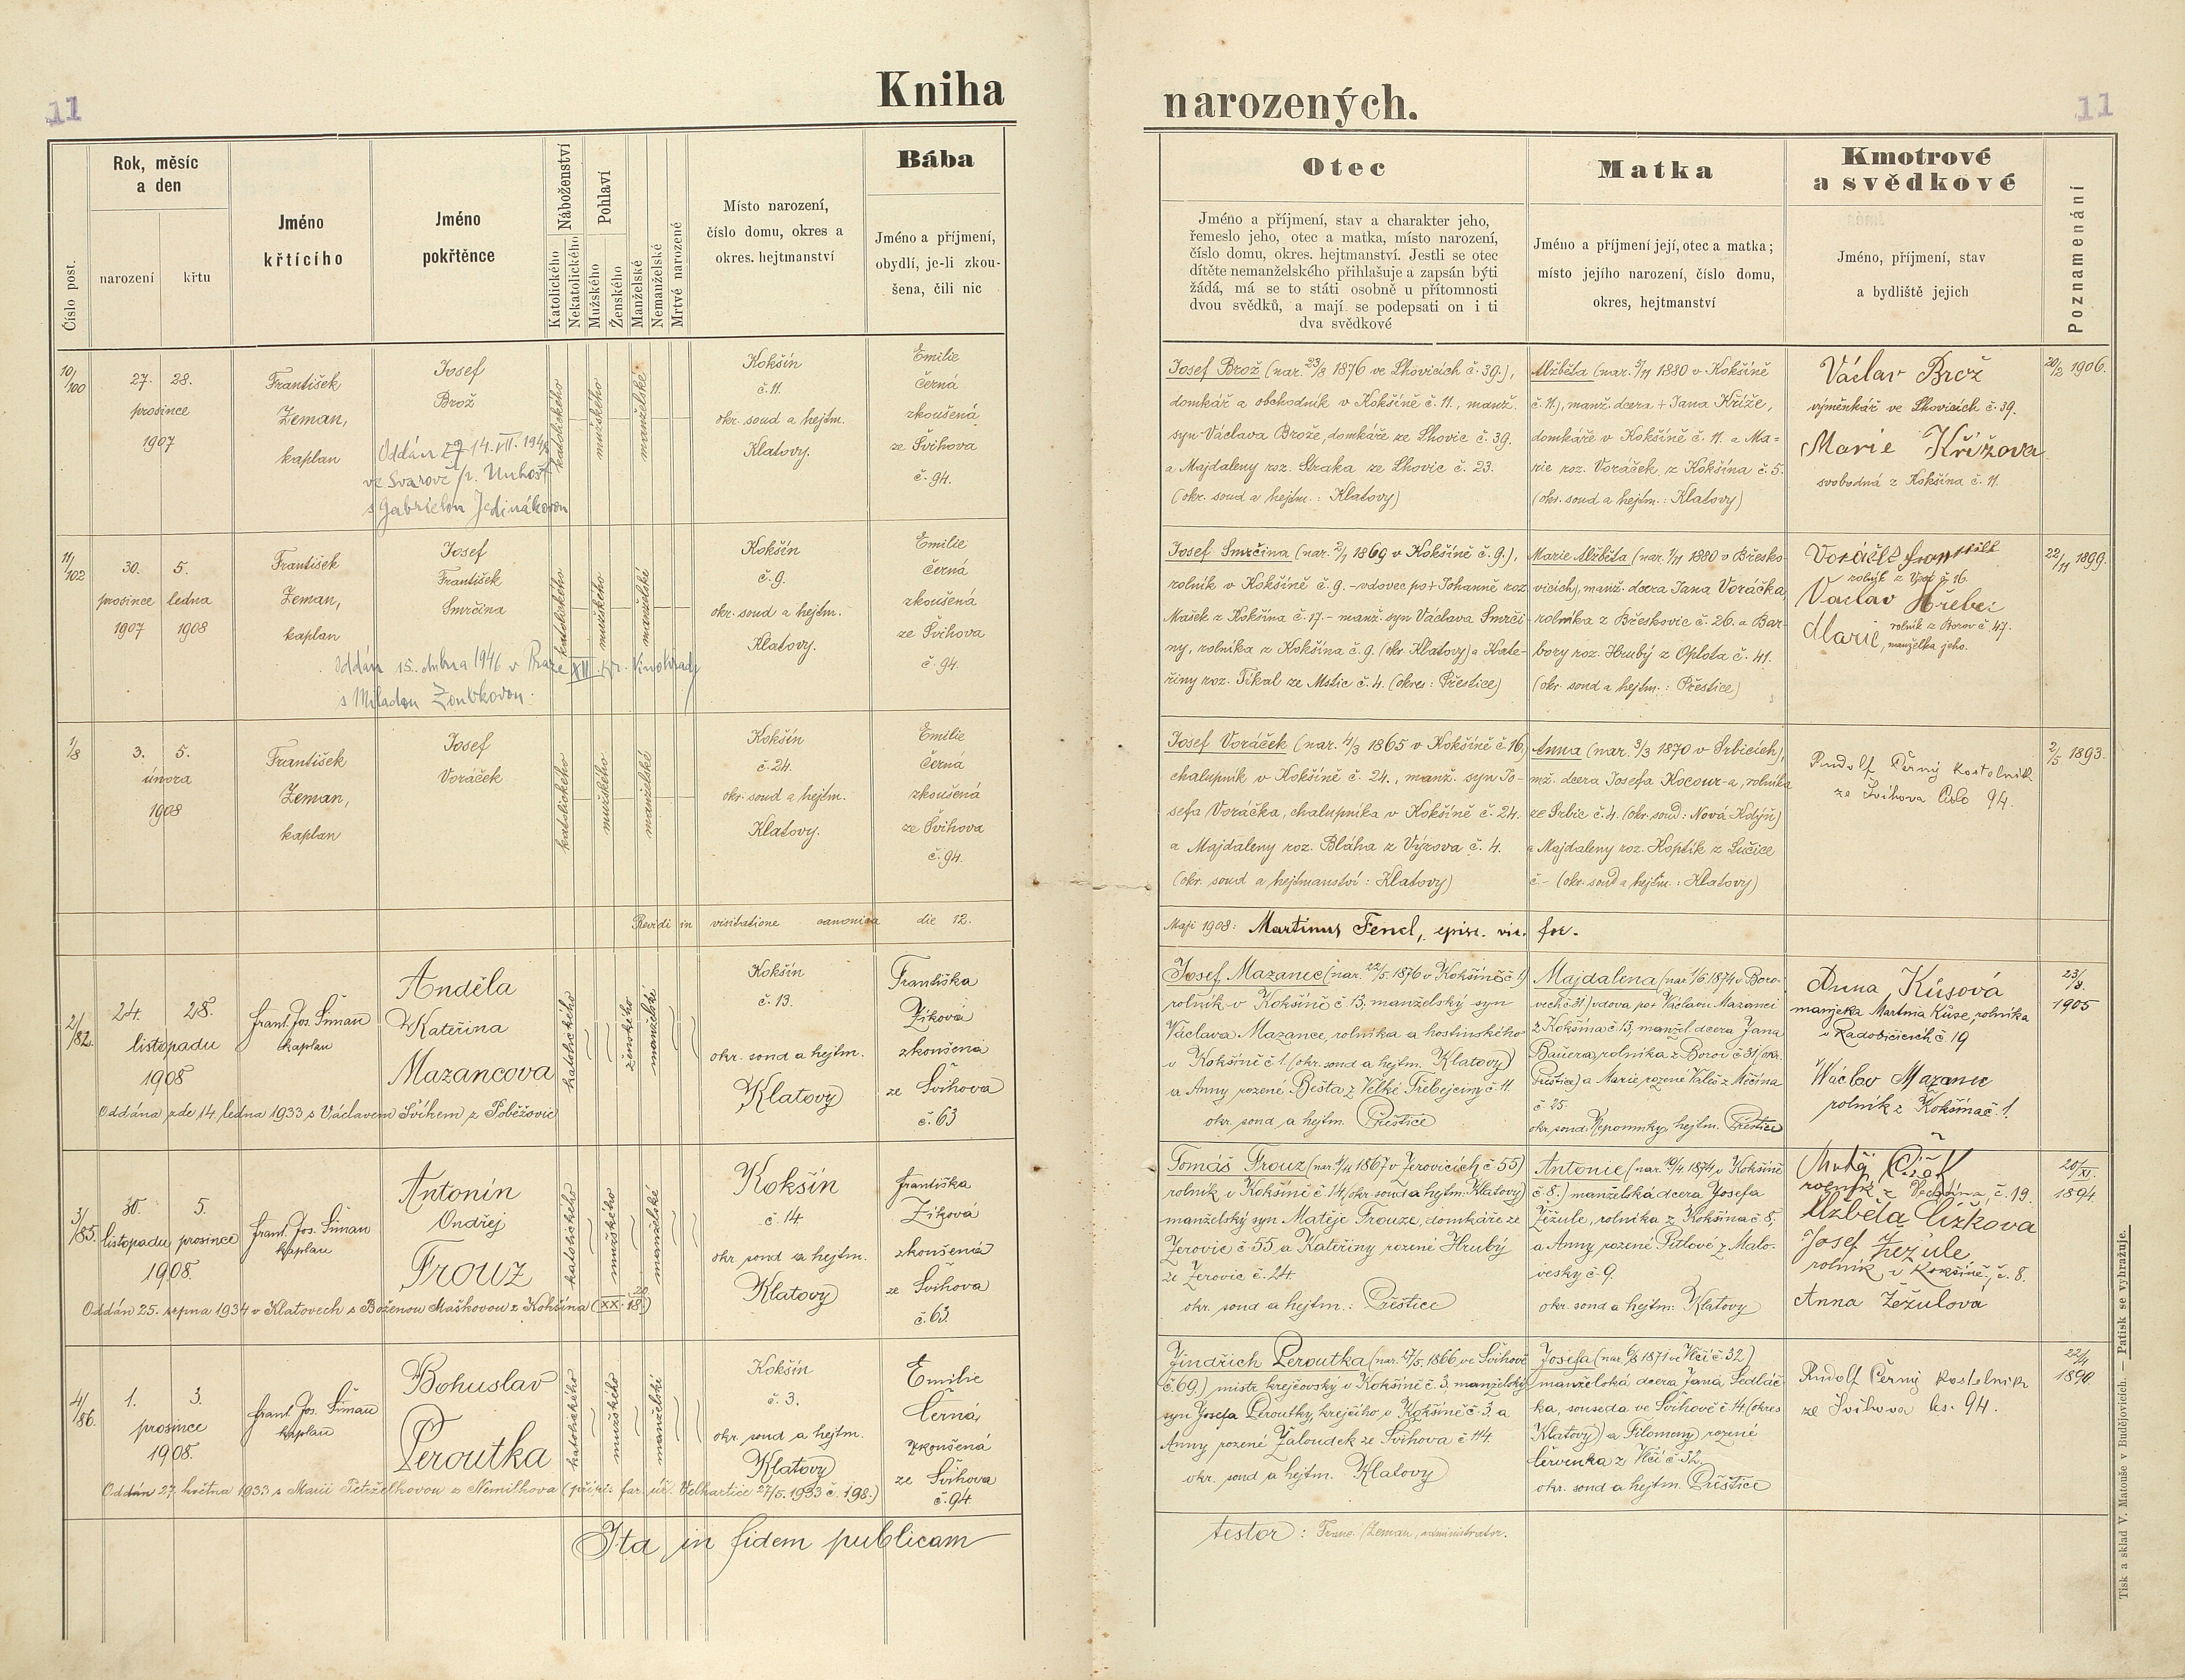 11
Kniha
narozených.
11
Číslo post.
Rok, měsíc
a den
narození
křtu
Jméno
křtícího
Jméno
pokřtěnce
Náboženství
Katolického
Nekatolického
Pohlaví
Mužského
Ženského
Manželské
Nemanželské
Mrtvé narozené
Místo narození,
číslo domu, okres a
okres. hejtmanství
Bába
Jméno a příjmení,
obydlí, je-li zkou-
šena, čili nic
Otec
Jméno a příjmení, stav a charakter jeho,
řemeslo jeho, otec a matka, místo narození,
číslo domu, okres. hejtmanství. Jestli se otec
dítěte nemanželského přihlašuje a zapsán býti
žádá, má se to státi osobně u přítomnosti
dvou svědků, a mají se podepsati on i ti
dva svědkové
Matka
Jméno a příjmení její, otec a matka;
místo jejího narození, číslo domu,
okres, hejtmanství
Kmotrové
a svědkové
Jméno, příjmení, stav
a bydliště jejich
Poznamenání
10/100
27. 28.
prosince
1907
František
Zeman,
kaplan
Josef
Brož
Oddán 14.VII.194
ve Svárově /p. Unhošť
s Gabrielou Jedinákovou
katolického
mužského
manželské
Kokšín
č. 11.
okr. soud a hejtm.
Klatovy.
Emilie
Černá
zkoušená
ze Švihova
č. 94.
Josef Brož (nar. 23/8 1876 ve Lhovicích č. 39.),
domkář a obchodník v Kokšíně č. 11., manž.
syn Václava Brože, domkáře ze Lhovic č. 39.
a Majdaleny roz. Straka ze Lhovic č. 23.
(okr. soud a hejtm.: Klatovy)
Alžběta (nar. 5/11 1880 v Kokšíně
č. 11), manž. dcera + Jana Kříže,
domkáře v Kokšíně č. 11. a Ma=
rie roz. Voráček z Kokšína č. 5.
(okr. soud a hejtm.: Klatovy)
Václav Brož
výměnkář ve Lhovicích č. 39.
Marie Křížova
svobodná z Kokšína č. 11.
20/2 1906.
11/102
30. 5.
prosince ledna
1907 1908
František
Zeman,
kaplan
Josef
František
Smrčina
Oddán 15. dubna 1946 v Praze XII Kr. Vinohrady
s Miladou Zoubkovou.
katolického
mužského
manželské
Kokšín
č. 9.
okr. soud a hejtm.
Klatovy.
Emilie
Černá
zkoušená
ze Švihova
č. 94.
Josef Smrčina (nar. 2/1 1869 v Kokšíně č. 9.),
rolník v Kokšíně č. 9. - vdovec po + Johanně roz.
Mašek z Kokšína č. 17. - manž. syn Václava Smrči-
ny, rolníka z Kokšína č. 9. (okr. Klatovy) a Kate-
řiny roz. Tikal ze Mstic č. 4. (okres: Přestice)
Marie Alžběta (nar. 1/11 1880 v Břesko-
vicích), manž. dcera Jana Voráčka,
rolníka z Břeskovic č. 26. a Bar-
bory roz. Hrubý z Oplota č. 41.
(okr. soud a hejtm.: Přestice)
Voráček František
rolník z č. 16.
Vaclav Hřebec
rolník z Borov č. 47.
Marie, manželka jeho.
22/11 1899.
1/8
3. 5.
února
1908
František
Zeman,
kaplan
Josef
Voráček
katolického
mužského
manželské
Kokšín
č. 24.
okr. soud a hejtm.
Klatovy.
Emilie
Černá
zkoušená
ze Švihova
č. 94.
Josef Voráček (nar. 4/3 1865 v Kokšíně č. 16.)
chalupník v Kokšíně č. 24., manž. syn Jo-
sefa Voráčka, chalupníka v Kokšíně č. 24.
a Majdaleny roz. Bláha z Výrova č. 4.
(okr. soud a hejtmanství: Klatovy)
Anna (nar. 3/3 1870 v Srbicích),
mž. dcera Josefa Kocour-a, rolníka
ze Srbic č. 4. (okr. soud: Nová Kdyň)
a Majdaleny roz. Koptík z Lučice
č - (okr. soud a hejtm.: Klatovy)
Rudolf Černý kostelník
ze Švihova číslo 94.
2/5 1893.
Revidi in visitatione canonica die 12.
Maji 1908: Martinus Fencl, episc. vic. for.
2/82.
24. 28.
listopadu
1908
Frant. Jos. Šiman
kaplan
Anděla
Kateřina
Mazancova
Oddána zde 14. ledna 1933 s Václavem Švihem z Poběžovic
katolického
ženského
manželské
Kokšín
č. 13.
okr. soud a hejtm.
Klatovy
Františka
Zíková
zkoušená
ze Švihova
č. 63
Josef Mazanec (nar. 22/5 1876 v Kokšíně č. 1)
rolník v Kokšíně č. 13. manželský syn
Václava Mazance, rolníka a hostinského
v Kokšíně č. 1. (okr. soud a hejtm. Klatovy)
a Anny rozené Bešta z Velké Třebejčiny č. 11.
okr. soud a hejtm. Přeštice
Majdalena (nar. 1/6 1874 v Boro-
vech č. 31) vdova po + Václavu Mazanci
z Kokšína č. 13, manžel. dcera Jana
Bauera, rolníka z Borov č. 31 (okr.
Přeštice) a Marie rozené Valeš z Měčína
č. 25.
okr. soud: Nepomuky, hejtm. Přeštice
Anna Kůsová
manželka Martina Kůse, rolníka
v Radobičicích č. 19
Wáclav Mazanec
rolník z Kokšína č. 1.
23/8.
1905
3/85.
30. 5.
listopadu prosince
1908.
Frant. Jos. Šiman
kaplan
Antonín
Ondřej
Frouz
Oddán 25. srpna 1934 v Klatovech s Boženou Maškovou z Kokšína (XX. 18.)
katolického
mužského
manželské
Kokšín
č. 14
okr. soud a hejtm.
Klatovy
Františka
Zíková
zkoušená
ze Švihova
č. 63.
Tomáš Frouz (nar. 1867 v Jerovicích č. 55)
rolník v Kokšíně č. 14 (okr. soud a hejtm. Klatovy)
manželský syn Matěje Frouze, domkáře ze
Jerovic č. 55 a Kateřiny rozené Hrubý
ze Jerovic č. 24.
okr. soud a hejtm.: Přeštice
Antonie (nar. 1874 v Kokšíně
č. 8.) manželská dcera Josefa
Žežule, rolníka z Kokšína č. 8,
a Anny rozené Pitlové z Malo-
vesky č. 9.
okr. soud a hejtm: Klatovy
rolník z č. 19.
Alžběta Čížkova
Josef Žežule
rolník v Kokšíně, č. 8.
Anna Žežulová
20/XI.
1894.
4/86.
1. 3.
prosince
1908.
Frant. Jos. Šiman
kaplan
Bohuslav
Peroutka
Oddán 27. května 1933 s Marií Petrželkovou z Nemilkova (přípis far. úř. Velhartice 27/5. 1933 č. 198.)
katolického
mužského
manželské
Kokšín
č. 3.
okr. soud a hejtm.
Klatovy
Emilie
Černá,
zkoušená
ze Švihova
č. 94
Jindřich Peroutka (nar. 17/5. 1866 ve Švihově
č. 69.) mistr krejčovský v Kokšíně č. 3, manželský
syn Josefa Peroutky, krejčího v Kokšíně č. 3. a
Anny rozené Žaloudek ze Švihova č. 114.
okr. soud a hejtm. Klatovy
Josefa (nar. 6/8 1871 ve Vlčí č. 32)
manželská dcera Jana Sedláč-
ka, souseda ve Švihově č. 14 (okres
Klatovy) a Filomeny rozené
Červenka z Vlčí č. 32.
okr. soud a hejtm. Přeštice
Rudolf Černý kostelník
ze Švihova čs. 94.
22/4
1890
Ita in fidem publicam
testor: Franc. Zeman, administrator.
Tisk a sklad V. Matouše v Budějovicích. — Patisk se vyhražuje.